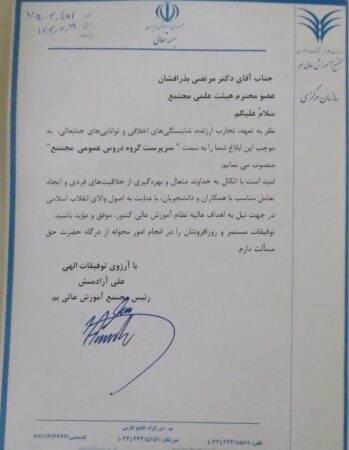 جمهوری اسلامی ایران
بسمه تعالی
مجتمع آموزش عالی بم
سازمان مرکزی
جناب آقای دکتر مرتضی بذرافشان
عضو محترم هیئت علمی مجتمع
سلام علیکم
نظر به تعهد، تجارب ارزنده، شایستگی‌های اخلاقی و توانایی‌های جنابعالی، به
موجب این ابلاغ شما را به سمت " سرپرست گروه دروس عمومی مجتمع"
منصوب می نمایم.
امید است با اتکال به خداوند متعال و بهره‌گیری از خلاقیت‌های فردی و ایجاد
تعامل مناسب با همکاران و دانشجویان، با عنایت به اصول والای انقلاب اسلامی
در جهت نیل به اهداف عالیه نظام آموزش عالی کشور، موفق و مؤید باشید.
توفیقات مستمر و روزافزونتان را در انجام امور محوله از درگاه حضرت حق
مسألت دارم.
با آرزوی توفیقات الهی
علی آزادمنش
رئیس مجتمع آموزش عالی بم
بم - بزرگراه خلیج فارس